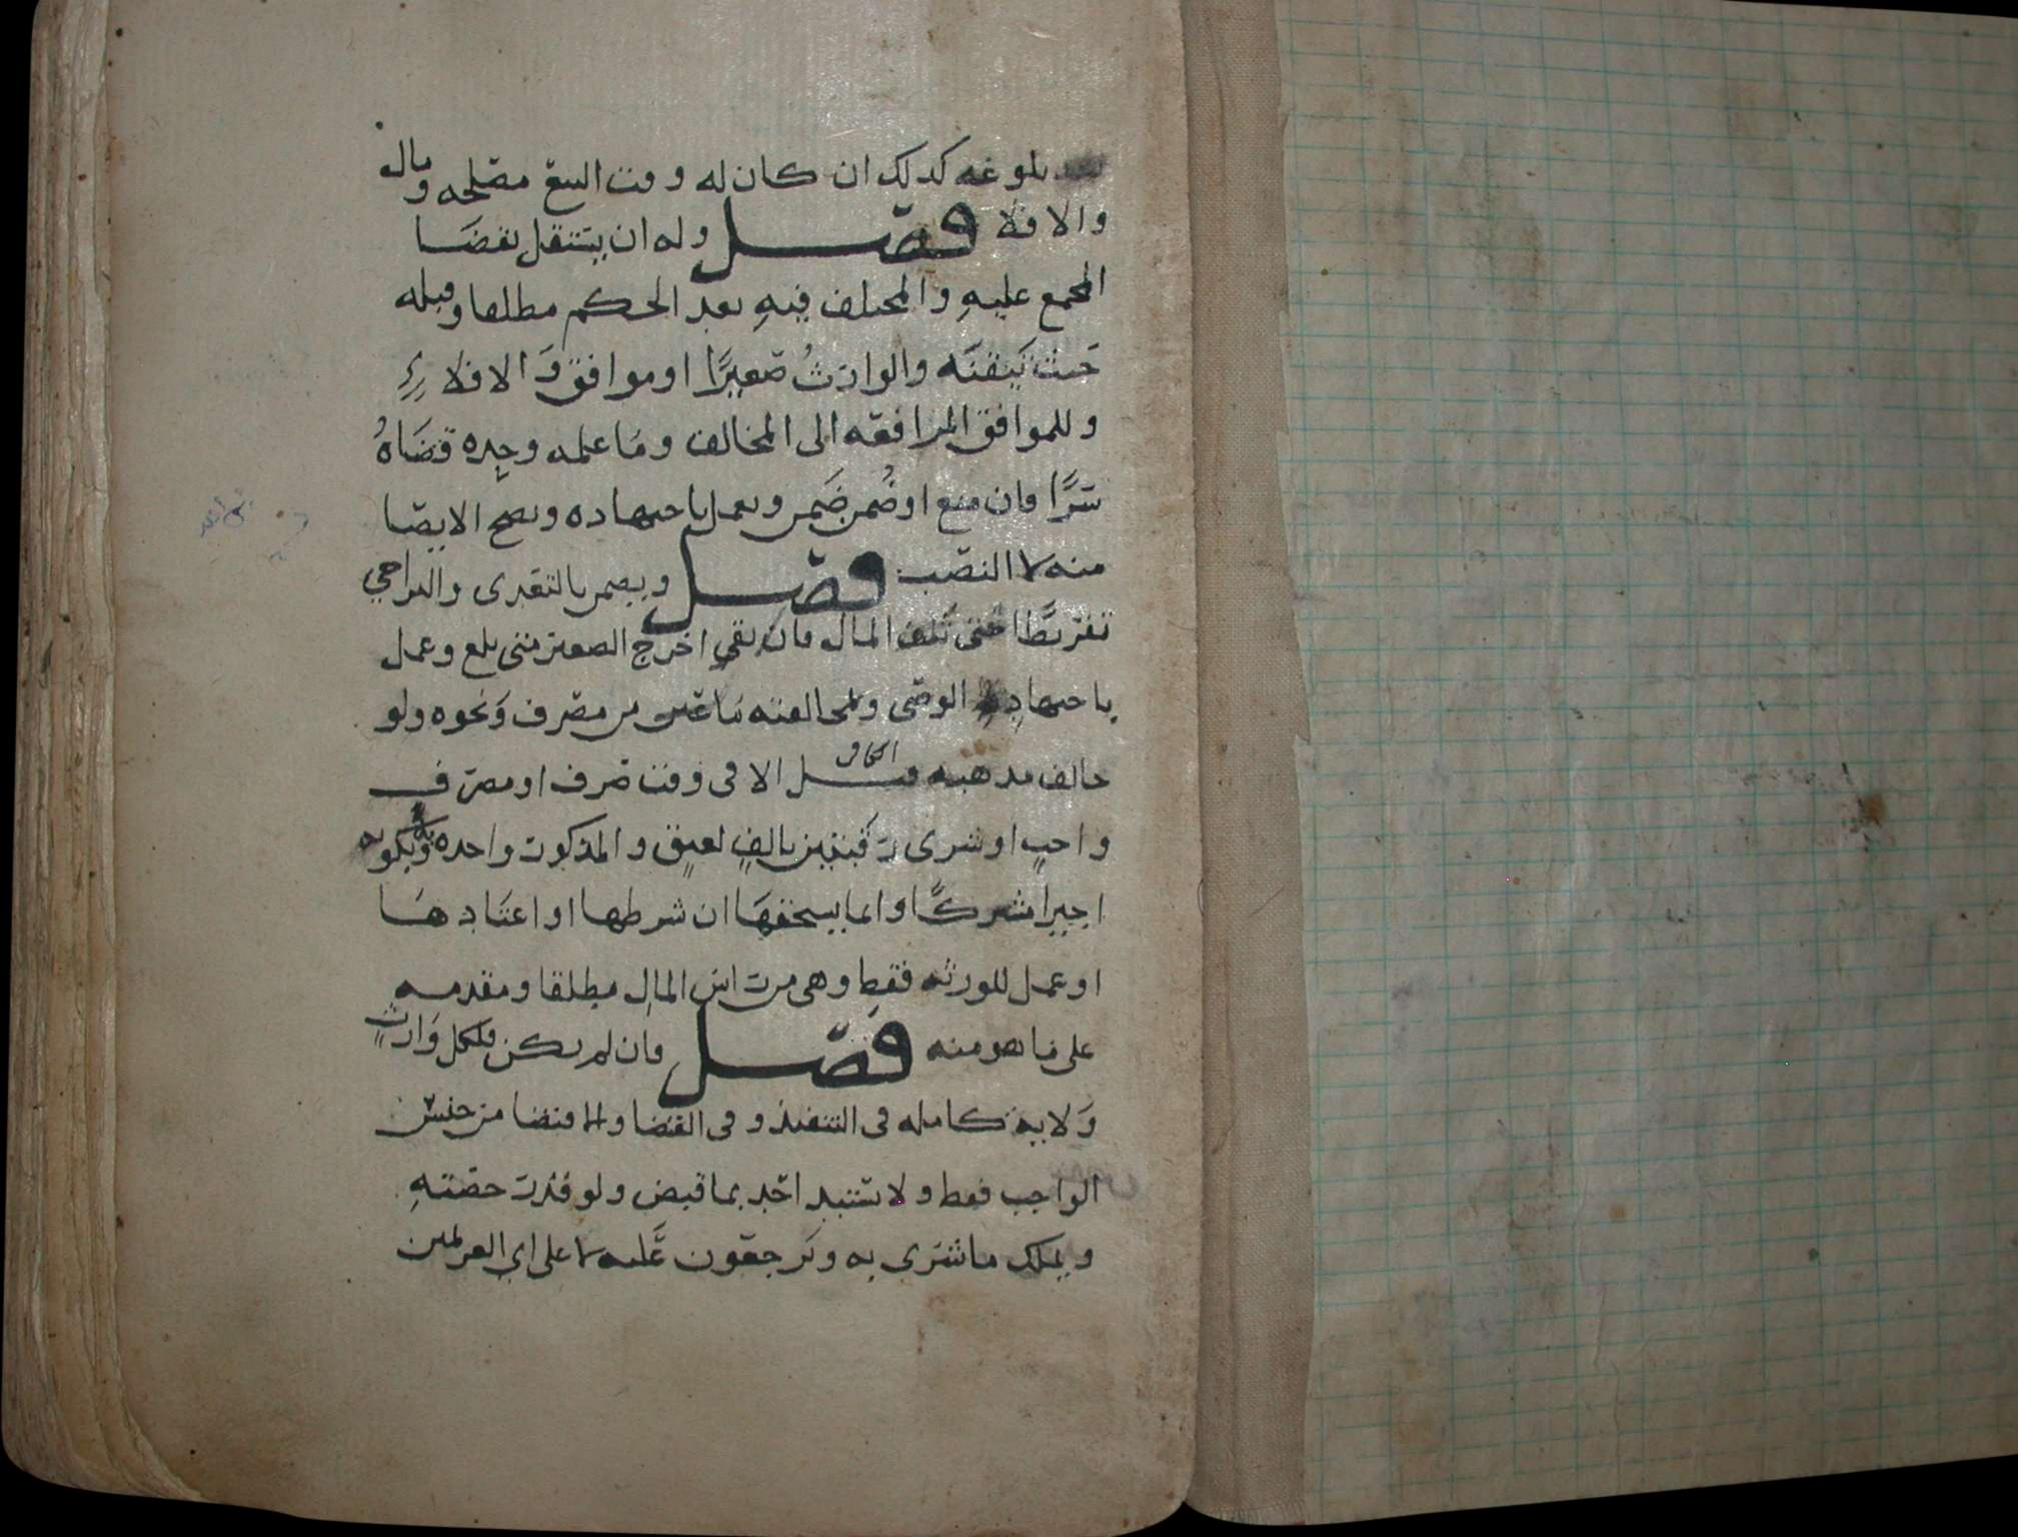 بعد بلوغه كذلك ان كان له وقت البيع مصلحه ومال
والا فلا فصل وله ان يستقل بقضا
المجمع عليهِ والمختلف فيهِ بعد الحكم مطلقا وقبله
حَيث تيَقنَه والوارثُ صَغيرًا او موافق وَالا فلا
وللموافق المرافعه الى المخالف ومَا علمه وحده قضَاهُ
سرًّا فان منع او ضُمن ضَمن ويعمل باجتهاده ويصح الايصا
منه لا النصب فصل ويضمن بالتعدى والتراخي
تفريطًا حتى تلف المال فان بقي اخرج الصغير متى بلغ وعمل
باجتهادِه الوصى وبمخالفته مَا عين من مصرف وَنحوه ولو
خالف مذهبه قيل الا فى وقت صَرف او مصرف
واجبٍ او شرى رَقبتين بالفٍ لعتقٍ والمذكور واحده به وَبكونه
اجيرًا مشتركًا وانما يستحقهَا ان شرطها او اعتَادهَا
او عمل للورثه فقط وهى من راس المالِ مطلقا ومقدمه
على مَا هو منه فصل فان لم يكن فلكل وَارثٍ
وَلايه كامله فى التنفيذ وفى القضا والاقتضا من جنس
الواجب فقط ولا يستبد احَد بما قبض ولو قدر حصتهِ
ويملك ما شرى به ويَرجعون عَليه لا على اي الغريمين